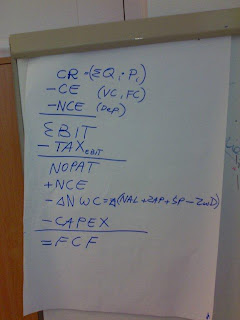 CR = (ΣQi · Pi)
- CE (VC, FC)
- NCE (Dep)
EBIT
- TAX EBIT
NOPAT
+ NCE
- ΔNWC = Δ(NAL + ZAP + SP - ZwD)
- CAPEX
= FCF